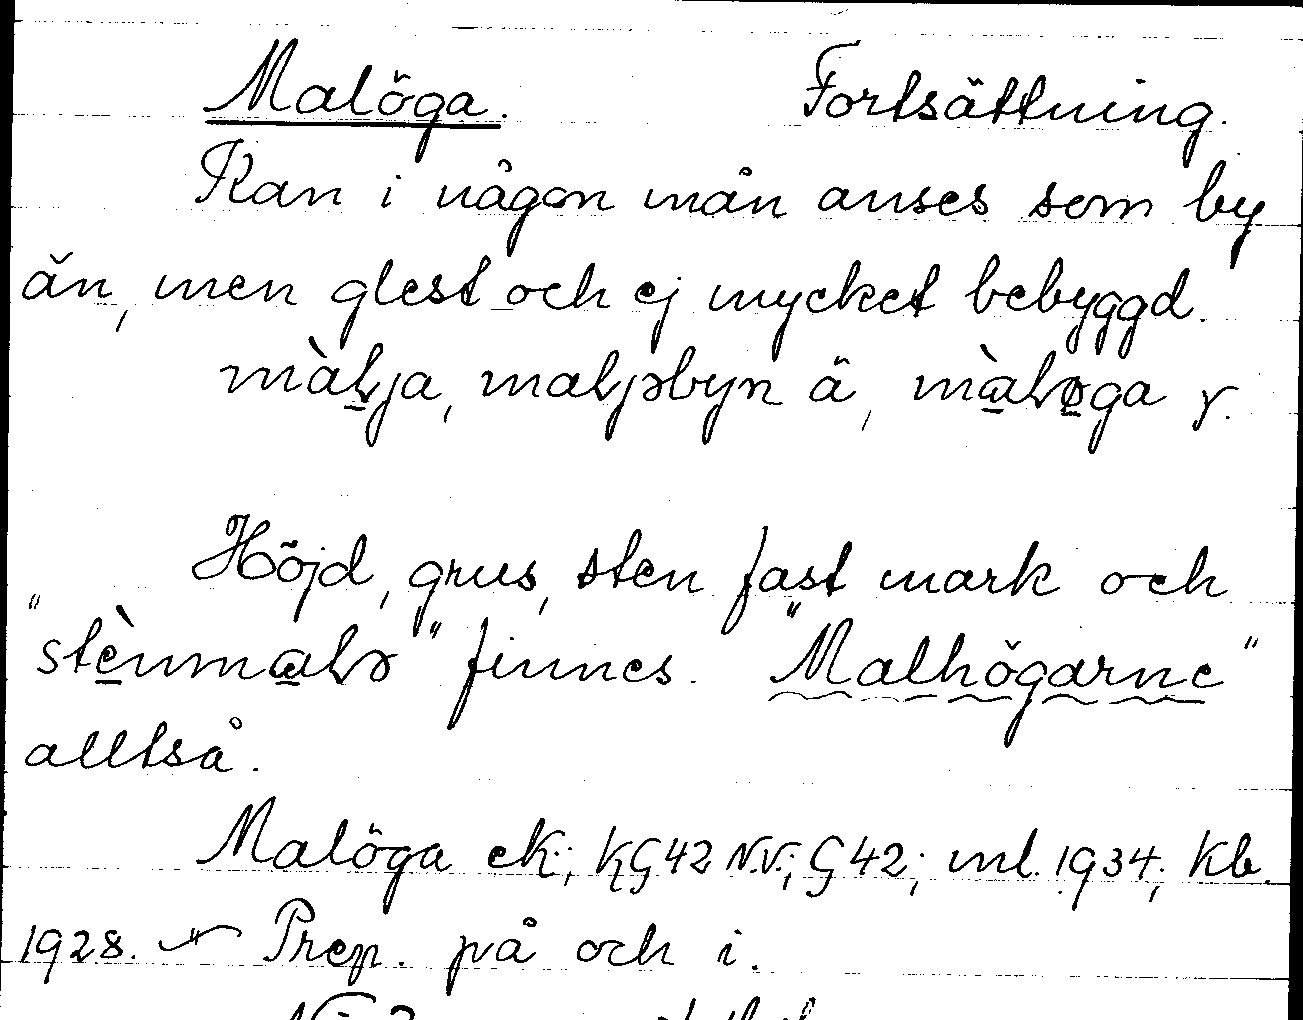 Malöga. Fortsättning.
Kan i någon mån anses som by
än, men glest och ej mycket bebyggd.
màlja, maljəbyn ä, màløga y.
Höjd, grus, sten fast mark och
"stènmalə" finnes. "Malhögarne"
alltså.
Malöga ek.; KG42 N.V.; G42; ml. 1934; Kb.
1928. Prep. på och i.